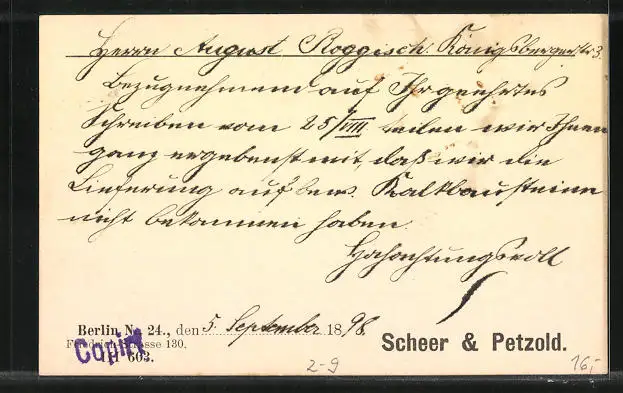 Herrn August Roggisch. Königsbergerstr 3.
Bezugnehmend auf Ihr geehrtes
Schreiben vom 25/VIII teilen wir Ihnen
ganz ergebenst mit, daß wir die
Lieferung auf Kalkbausteine
nicht bekommen haben.
Hochachtungsvoll
Berlin N. 24., den 5. September 1898.
Friedrich-Strasse 130.
III 603.
Copirt
Scheer & Petzold.
2-9
16,-